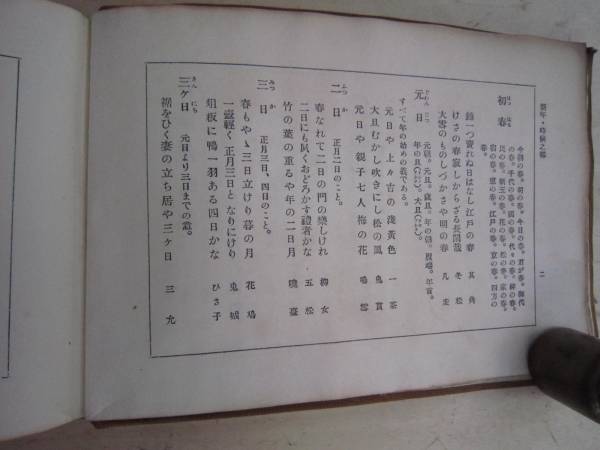 新年・時候之部
二
初春
はつ はる
今朝の春。初の春。今日の春。君が春。御代
の春。千代の春。国の春。代々の春。神の春。
民の春。朝玉の春。花の春。松の春。家の春。
宿の春。里の春。江戸の春。京の春。四方の
春。
鐘一つ賣れぬ日はなし江戸の春 其角
けさの春寂しからざる長閑哉 冬松
大雪のものしづかさや明の春 凡圭
元日
元朝。元旦。歳旦。年の朝。
年の旦。大旦。
すべて年の始めの義である。
元日や上々吉の淺黃色 一茶
大旦むかし吹きにし松の風 鬼貫
元日や親子七人梅の花 鳴雪
二日 正月二日のこと。
ふつ か
春なれて二日の門の樂しけれ
二日にも夙くおどろかす禮者かな 五松
竹の葉の重るや年の二日月 曉臺
三日 正月三日、四日のこと。
みつ か
春もやゝ三日立けり暮の月 花鳩
一壷輕く正月三日となりにけり 鬼城
俎板に鴨一羽ある四日かな ひさ子
三ヶ日 元日より三日までの意。
さん にち
裾をひく妻の立ち居や三ヶ日 三允